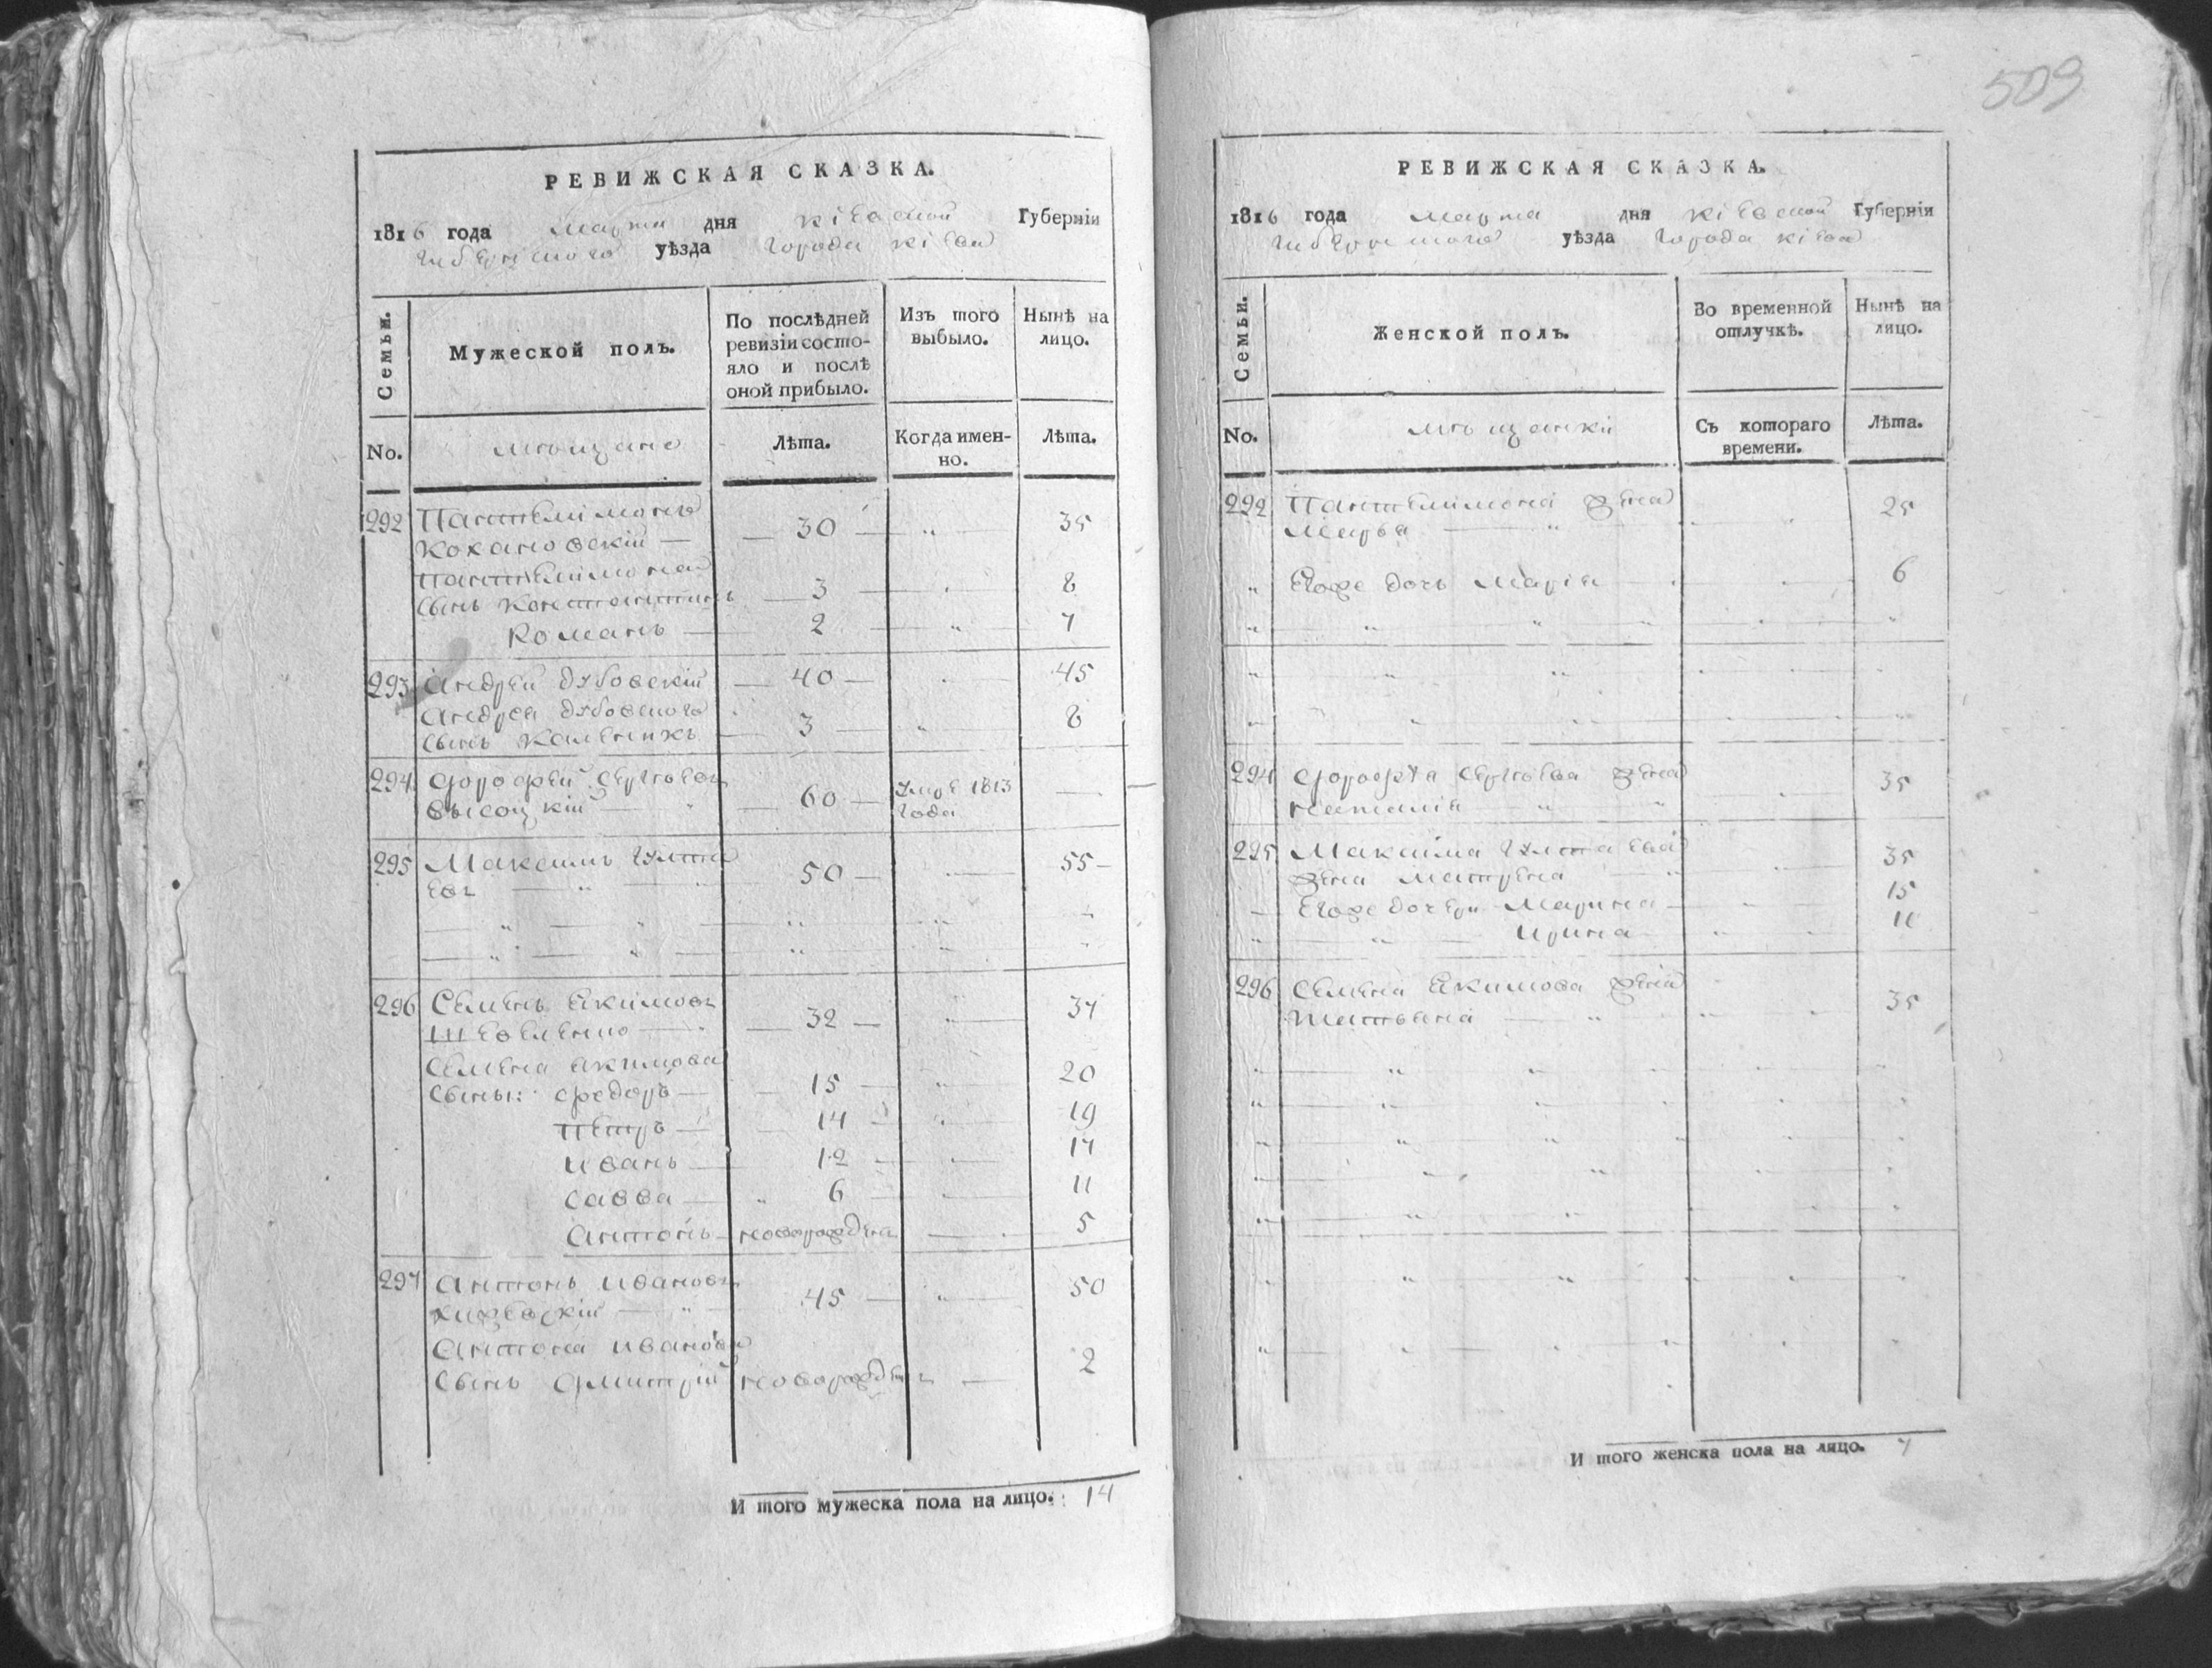 509
РЕВИЖСКАЯ СКАЗКА.
1816 года марта дня кіевской Губерніи
уѣзда города кіева
Семьи.
Мужеской полъ.
По послѣдней ревизіи состояло и послѣ оной прибыло.
Изъ того выбыло.
Нынѣ на лицо.
No. мѣщане Лѣта. Когда именно. Лѣта.
292 Пантелімонъ
Кохановскій — 30 — „ — 35
Пантелімона
сынъ Константинъ — 3 — „ — 8
Романъ — 2 — „ — 7
293 Андрей дубовскій — 40 — „ — 45
Андрея дубовского
сынъ Каленикъ — 3 — „ — 8
294 Сергѣевъ
высоцкій — „ — 60 — умре 1813
года —
295 Максимъ Гулта
евъ — „ — 50 — „ — 55 —
296 Семенъ Екимовъ
Шевеленко — „ — 32 — „ — 37
Семена екимова
сыны: федоръ — 15 — „ — 20
петръ — 14 — „ — 19
иванъ — 12 — „ — 17
савва — „ 6 — „ — 11
антонъ — новорожденъ — 5
297 антонъ ивановъ
— „ — 45 — „ — 50
антона иванова
сынъ дмитрій новорожденъ — 2
И того мужеска пола на лицо. : 14
РЕВИЖСКАЯ СКАЗКА.
1816 года марта дня кіевской Губерніи
уѣзда города кіева
Семьи.
Женской полъ.
Во временной отлучкѣ.
Нынѣ на лицо.
No. мѣщанки Съ котораго времени. Лѣта.
292 Пантелімона жена
марья — „ — 25
„ Егоже дочь марія — 6
294 Сергѣева жена
наталія „ „ 35
295 Максима Гултаева
жена матрена — „ 35
— Егоже дочери марина — 15
ирина — 11
296 Семена Екимова жена
татьяна — „ — 35
И того женска пола на лицо. 7